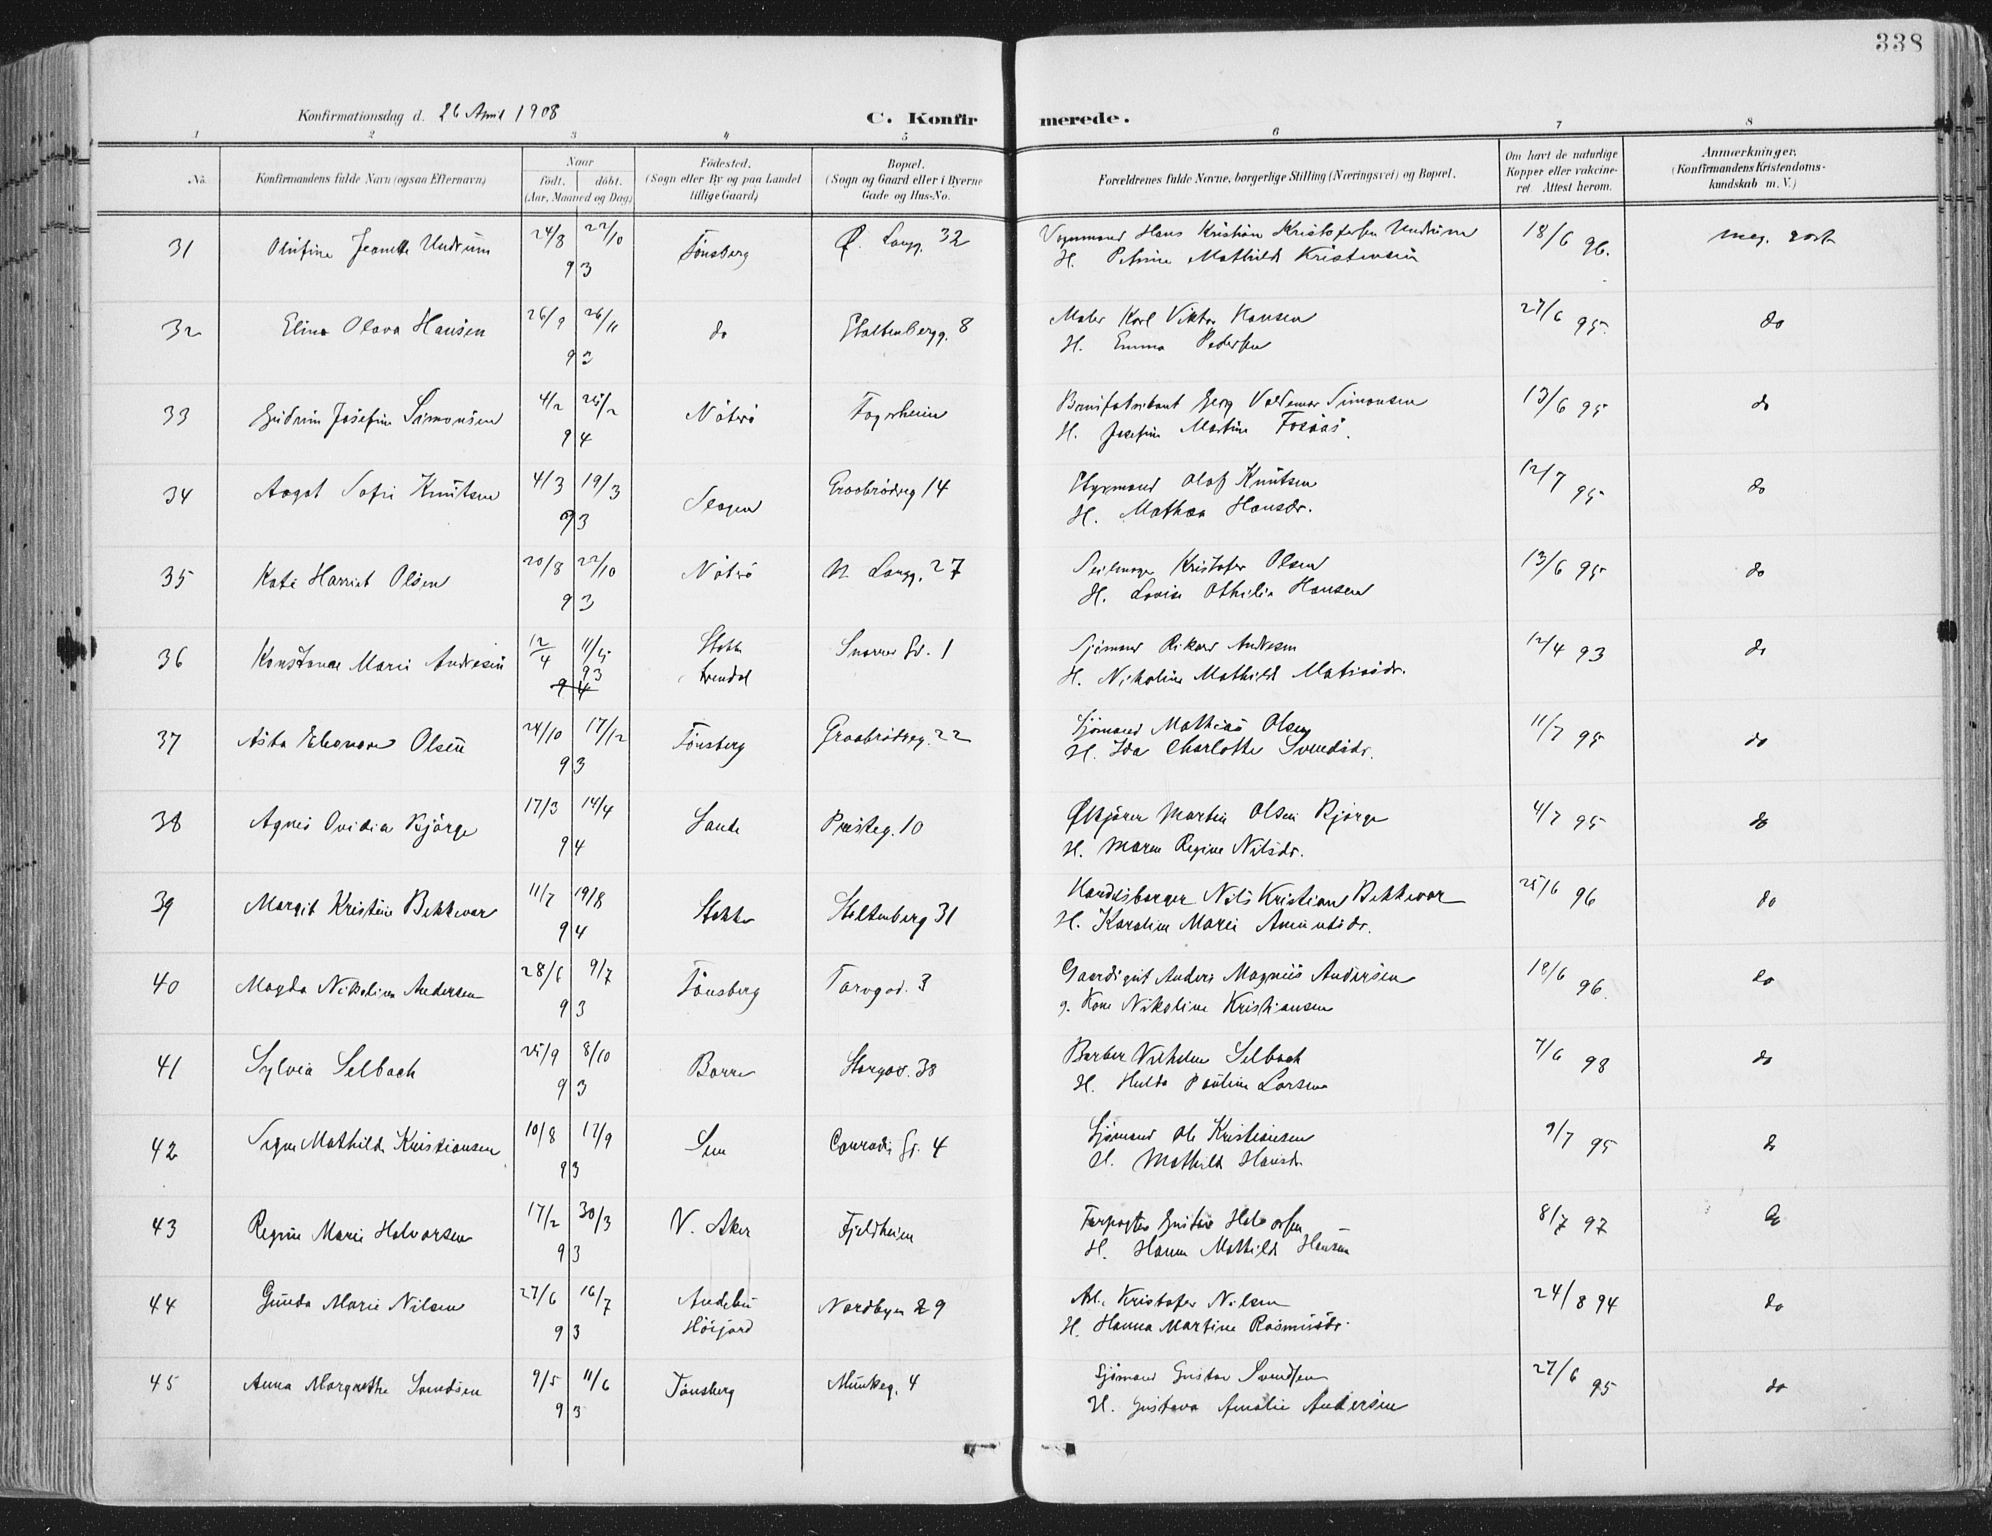 338
Konfirmationsdag d. 26 April 1908
C. Konfirmerede.
1 2 3 4 5 6 7 8
No.
Konfirmandens fulde Navn (ogsaa Efternavn)
Naar
født. døbt.
(Aar, Maaned og Dag)
Fødested.
(Sogn eller By og paa Landet
tillige Gaard)
Bopæl.
(Sogn og Gaard eller i Byerne
Gade og Hus-No.
Forældrenes fulde Navne, borgerlige Stilling (Næringsvei) og Bopæl.
Om havt de naturlige
Kopper eller vakcine-
ret Attest herom.
Anmærkninger.
(Konfirmandens Kristendoms-
kundskab m. V.)
31 Olufine Jeanette Undrum 24/8 22/10 Tönsberg Ø. Langg. 32 Vognmand Hans Kristian Kristofersen Undrum 18/6 96. meg. godt
93 H. Petrine Mathilde Kristensen
32 Elina Olava Hansen 26/9 26/11 do Stoltenbergg. 8 Maler Karl Viktor Hansen 27/6 95. do
93 H. Emma Pedersen
33 Gudrun Josefine Simonsen 4/2 25/2 Nöterö Fagerheim Brusfabrikant Georg Valdemar Simonsen 13/6 95 do
94 H. Josefine Martine
34 Aagot Sofie Knutsen 4/3 19/3 Slagen Graabrödreg 14 Styrmand Olaf Knutsen 12/7 95 do
93 H. Mathea Hansdr.
35 Kate Harriet Olsen 20/8 22/10 Nöterö N Langg. 27 Seilmager Kristofer Olsen 13/6 95 do
93 H. Lovise Othilie Hansen
36 Konstanse Marie Andresen 12/4 11/5 93 Stokke Snorres Gd. 1 Sjömand Rikard Andresen 12/4 93 do
94 Arendal H. Nikoline Mathilde Matiasdr.
37 Asta Eleonore Olsen 24/10 17/12 Tönsberg Graabrödreg. 22 Sjömand Mathias Olsen 11/7 95 do
93 H. Ida Charlotte Svendsdr.
38 Agnes Ovidia Bjørge 17/3 14/4 Sande Presteg. 10 Ølkjörer Martin Olsen Bjørge 4/7 95 do
94 H. Maren Regine Nilsdr.
39 Margit Kristine Bekkevar 11/7 19/8 Stokke Stoltenberg 31 Handelsborger Nils Kristian Bekkevar 25/6 96 do
94 H. Karoline Marie Amundsdr.
40 Magda Nikoline Andersen 28/6 9/7 Tönsberg Torvgad. 3 Gaardsgut Anders Magnus Andersen 18/6 96. do
93 g. Kone Nikoline Kristiansen
41 Sylvia Selbach 25/9 8/10 Borre Storgad. 38 Barber Vilhelm Selbach 7/6 98 do
93 H. Hulda Pauline Larsen
42 Signe Mathilde Kristiansen 10/8 17/9 Sem Conradis Gd. 4 Sjömand Ole Kristiansen 9/7 95 do
93 H. Mathilde Hansdr.
43 Regine Marie Halvorsen 17/2 30/3 V. Aker Fjeldheim Forpagter Gustav Halvorsen 8/7 97 do
93 H. Hanna Mathilde Hansen
44 Gunda Marie Nilsen 27/6 16/7 Andebu Nordbyen 29 Arb. Kristofer Nilsen 24/8 94 do
93 Höijord H. Hanna Martine Rasmusdr.
45 Anna Margrethe Svendsen 9/5 11/6 Tönsberg Munkeg. 4 Sjömand Gustav Svendsen 27/6 95 do
93 H. Gustava Amalie Andersen